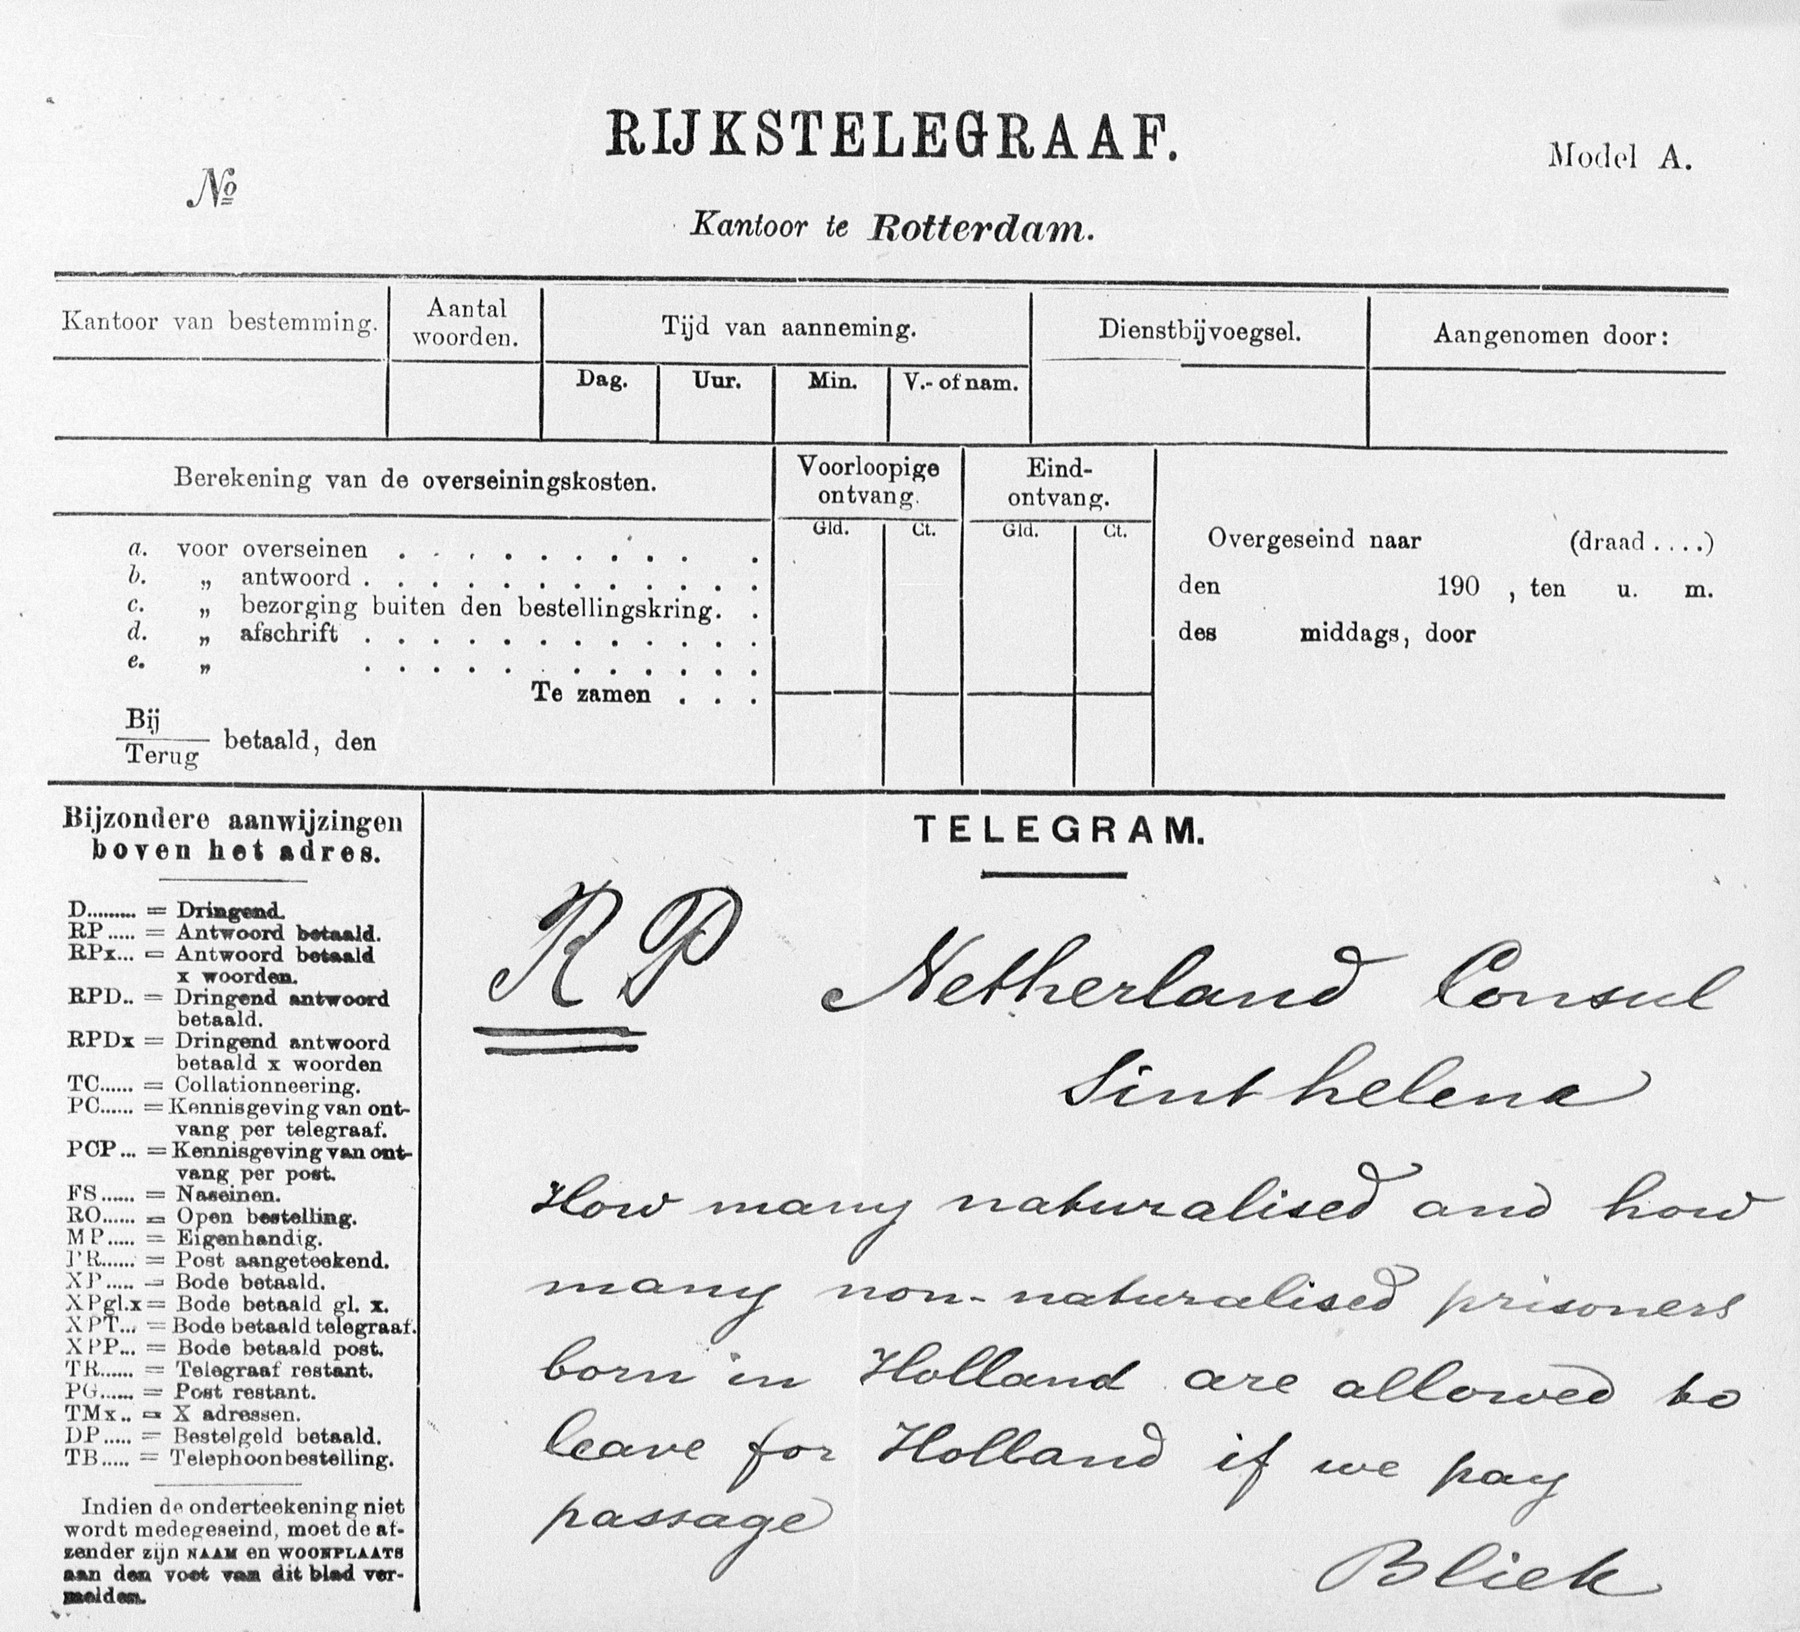 RIJKSTELEGRAAF.
Model A.
No
Kantoor te Rotterdam.
Kantoor van bestemming.
Aantal woorden.
Tijd van aanneming.
Dienstbijvoegsel.
Aangenomen door:
Dag. Uur. Min. V.- of nam.
Berekening van de overseiningskosten.
Voorloopige ontvang.
Eind-
ontvang.
Gld. Ct. Gld. Ct.
a. voor overseinen . . . . . . . . . .
b. „ antwoord . . . . . . . . . . . .
c. „ bezorging buiten den bestellingskring. .
d. „ afschrift . . . . . . . . . . . .
e. „ . . . . . . . . . . . .
Te zamen . . .
Bij
Terug
betaald, den
Overgeseind naar (draad ....)
den 190 , ten u. m.
des middags, door
Bijzondere aanwijzingen
boven het adres.
D......... = Dringend.
RP ..... = Antwoord betaald.
RPx... = Antwoord betaald
x woorden.
RPD.. = Dringend antwoord
betaald.
RPDx = Dringend antwoord
betaald x woorden
TC...... = Collationneering.
PC...... = Kennisgeving van ont-
vang per telegraaf.
PCP ... = Kennisgeving van ont-
vang per post.
FS ...... = Naseinen.
RO...... = Open bestelling.
MP ..... = Eigenhandig.
PR...... = Post aangeteekend.
XP ..... = Bode betaald.
XPgl.x = Bode betaald gl. x.
XPT... = Bode betaald telegraaf.
XPP... = Bode betaald post.
TR...... = Telegraaf restant.
PG...... = Post restant.
TMx .. = X adressen.
DP ..... = Bestelgeld betaald.
TB ..... = Telephoonbestelling.
Indien de onderteekening niet
wordt medegeseind, moet de af-
zender zijn NAAM en WOONPLAATS
aan den voet van dit blad ver-
melden.
TELEGRAM.
RP Netherland Consul
Sint helena
How many naturalised and how
many non-naturalised prisoners
born in Holland are allowed to
leave for Holland if we pay
passage
Bliek